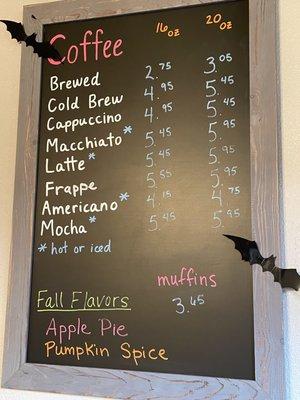 Coffee 16 oz 20 oz
Brewed 2.75 3.05
Cold Brew 4.95 5.45
Cappuccino 4.95 5.45
Macchiato* 5.45 5.95
Latte* 5.45 5.95
Frappe 5.55 5.95
Americano* 4.15 4.75
Mocha* 5.45 5.95
* hot or iced
muffins
3.45
Fall Flavors
Apple Pie
Pumpkin Spice